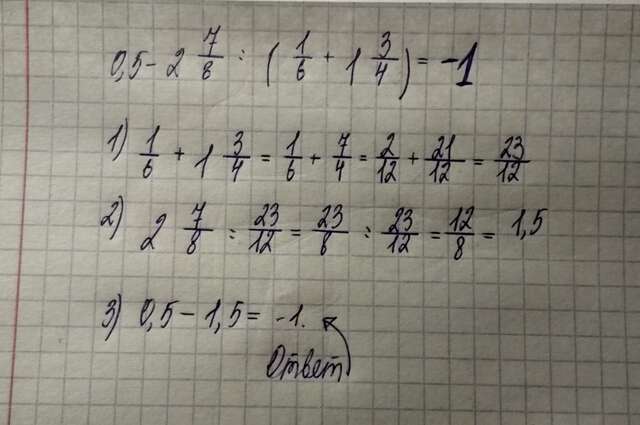 0,5 - 2 7/8 : (1/6 + 1 3/4) = -1
1) 1/6 + 1 3/4 = 1/6 + 7/4 = 2/12 + 21/12 = 23/12
2) 2 7/8 : 23/12 = 23/8 : 23/12 = 12/8 = 1,5
3) 0,5 - 1,5 = -1.
Ответ